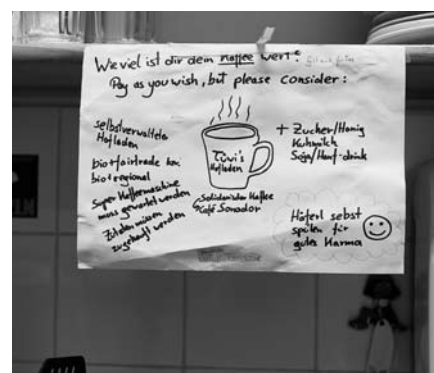 Wieviel ist dir dein Kaffee wert?
Pay as you wish, but please consider:
selbstverwalteter
Hofladen
bio+fairtrade bzw.
bio+regional
Super Kaffeemaschine
muss gewartet werden
Zutaten müssen
zugekauft werden
Tüwi's
Hofladen
Solidarischer Kaffee
Café Sonador
+ Zucker/Honig
Kuhmilch
Soja/Hanf-drink
Häferl selbst
spülen für
gutes Karma